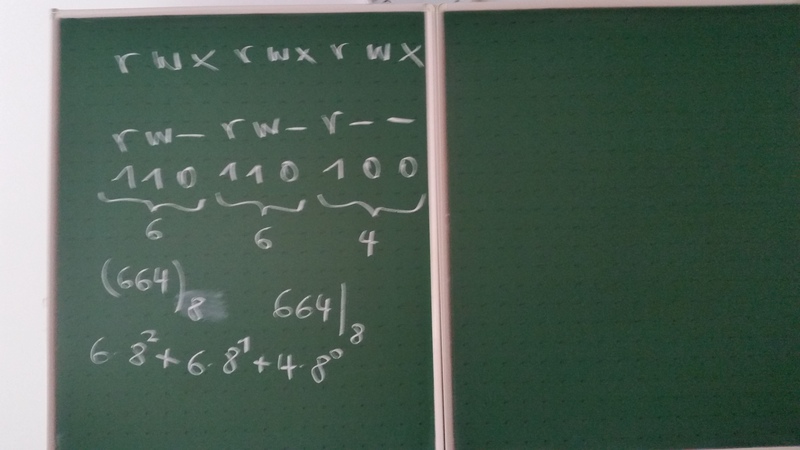 rwx rwx rwx
rw- rw- r--
110 110 100
6 6 4
(664)₈ 664|₈
6·8²+6·8¹+4·8⁰